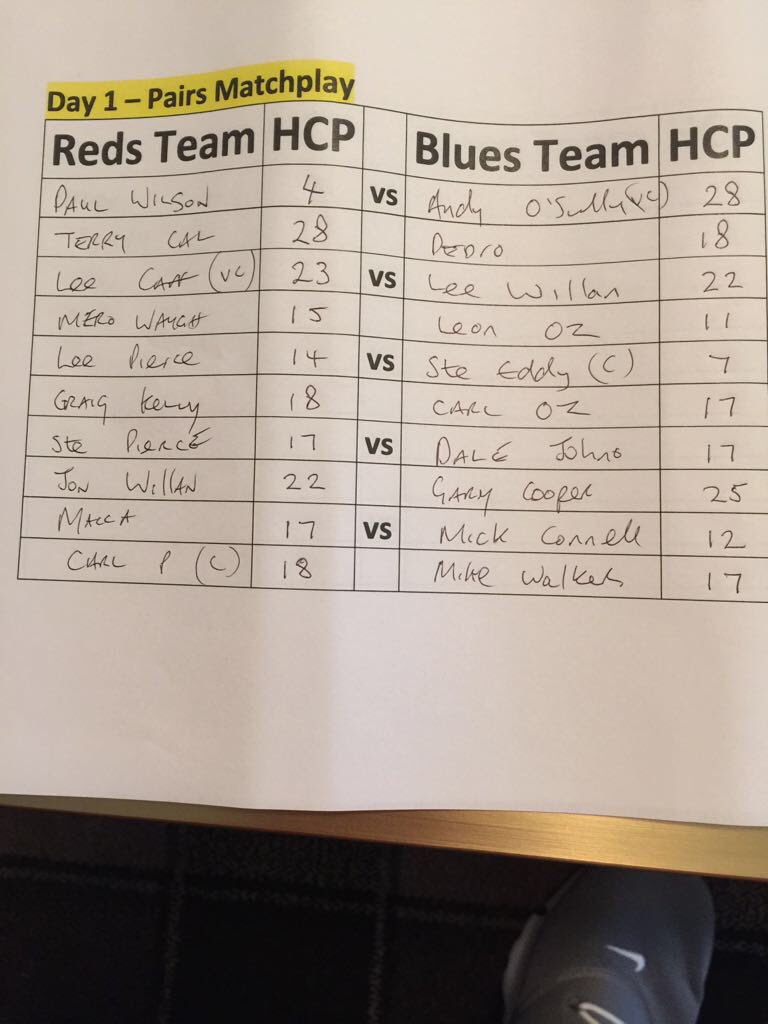 Day 1 – Pairs Matchplay
Reds Team HCP Blues Team HCP
PAUL WILSON 4 vs Andy O'Sully (VC) 28
TERRY CAL 28 PEDRO 18
Lee (VC) 23 vs Lee Willan 22
MERO WAUGH 15 Leon OZ 11
Lee Pierce 14 vs Ste Eddy (C) 7
GRAIG Kenny 18 CARL OZ 17
Ste PIERCE 17 vs DALE Johno 17
JON WILLAN 22 GARY Cooper 25
MACCA 17 vs Mick Connell 12
CARL P (C) 18 Mike 17